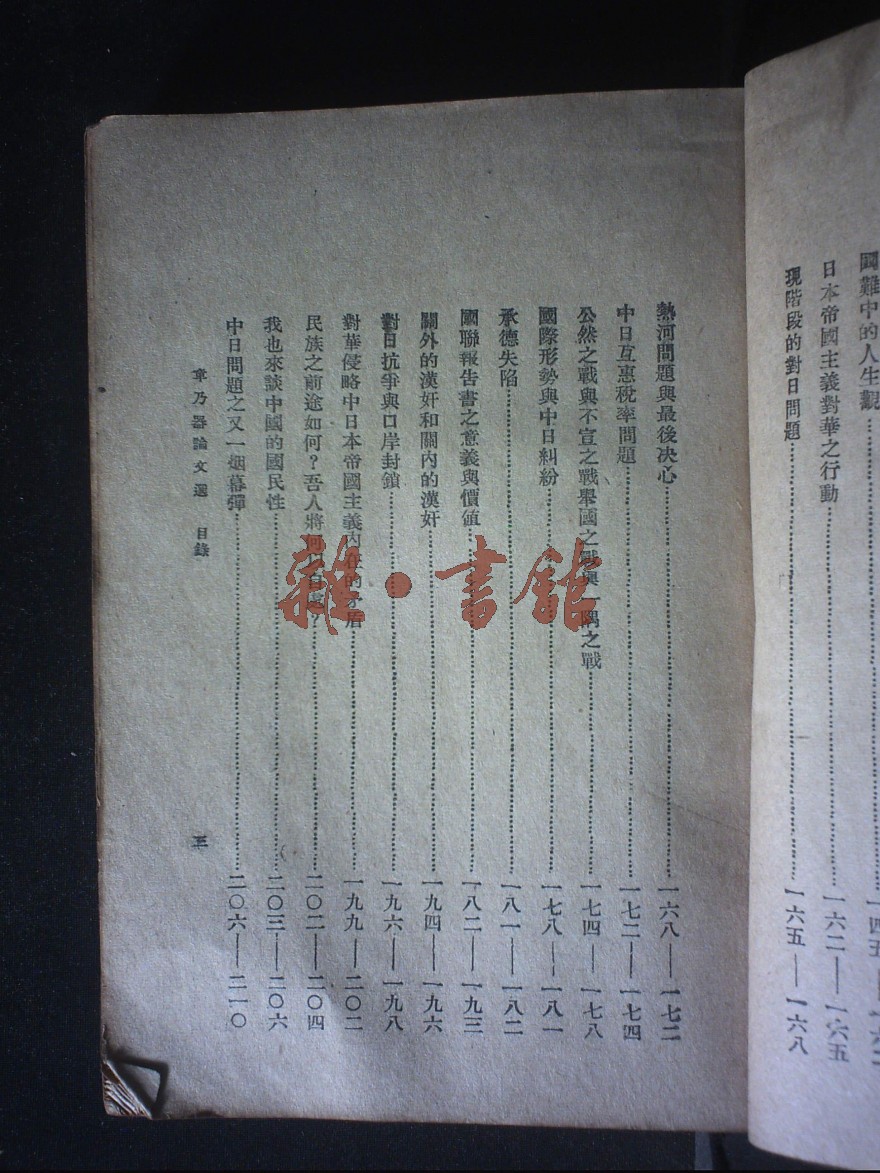 國難中的人生觀……一四五——一六二
日本帝國主義對華之行動……一六二——一六五
現階段的對日問題……一六五——一六八
熱河問題與最後决心……一六八——一七二
中日互惠稅率問題……一七二——一七四
公然之戰與不宣之戰舉國之戰與一隅之戰……一七四——一七八
國際形勢與中日糾紛……一七八——一八一
承德失陷……一八一——一八二
國聯報告書之意義與價値……一八二——一九三
關外的漢奸和關內的漢奸……一九四——一九六
對日抗爭與口岸封鎖……一九六——一九八
對華侵略中日本帝國主義內在的矛盾……一九九——二〇二
民族之前途如何？吾人將何以自處？……二〇二——二〇四
我也來談中國的國民性……二〇三——二〇六
中日問題之又一烟幕彈……二〇六——二一〇
章乃器論文選 目錄 三
雜·書館